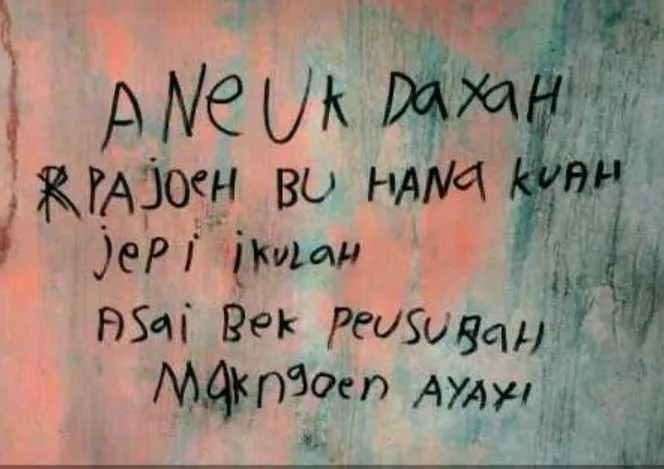 ANeUK DaYaH
PAJOeH BU HANa KUAH
jePi iKULaH
ASai Bek PeUSUSaH
MakngoeN AYAYI